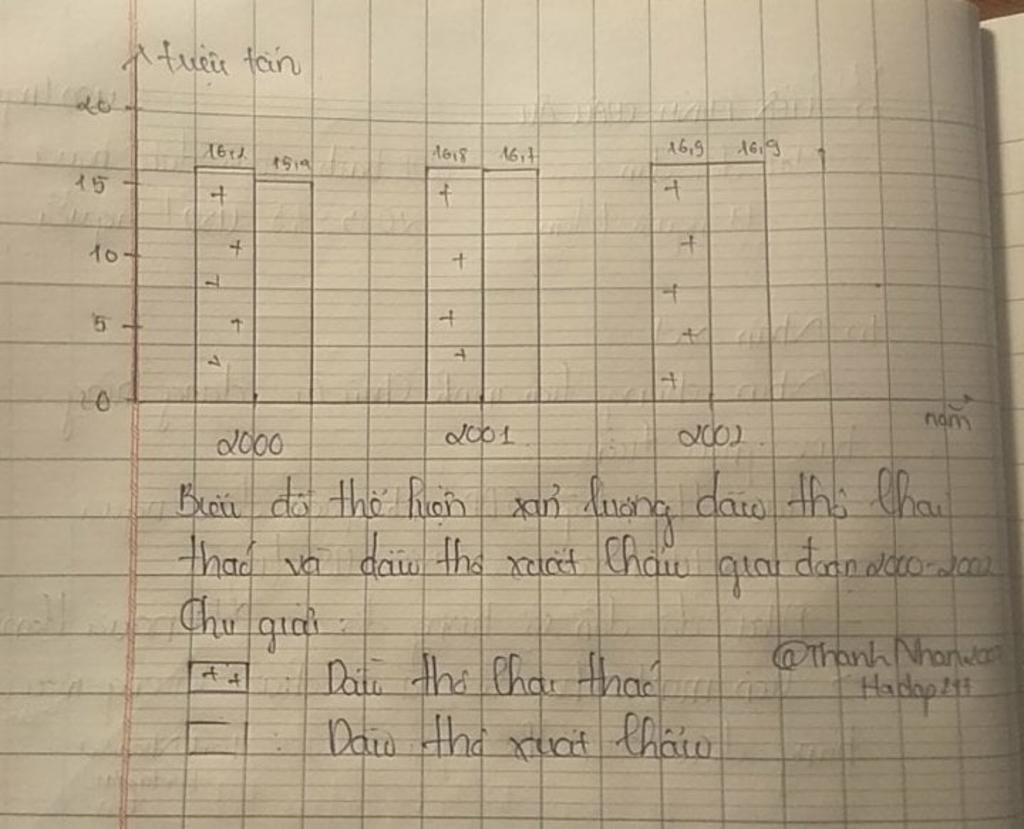 triệu tấn
20
16,2 15,4 16,8 16,7 16,9 16,9
15
10
5
0
năm
2000 2001 2002
Biểu đồ thể hiện sản lượng dầu thô khai
thác và dầu thô xuất khẩu giai đoạn 2000-2002
Chú giải:
++ : Dầu thô khai thác
@ThanhNhanwoo
Hadop247
: Dầu thô xuất khẩu